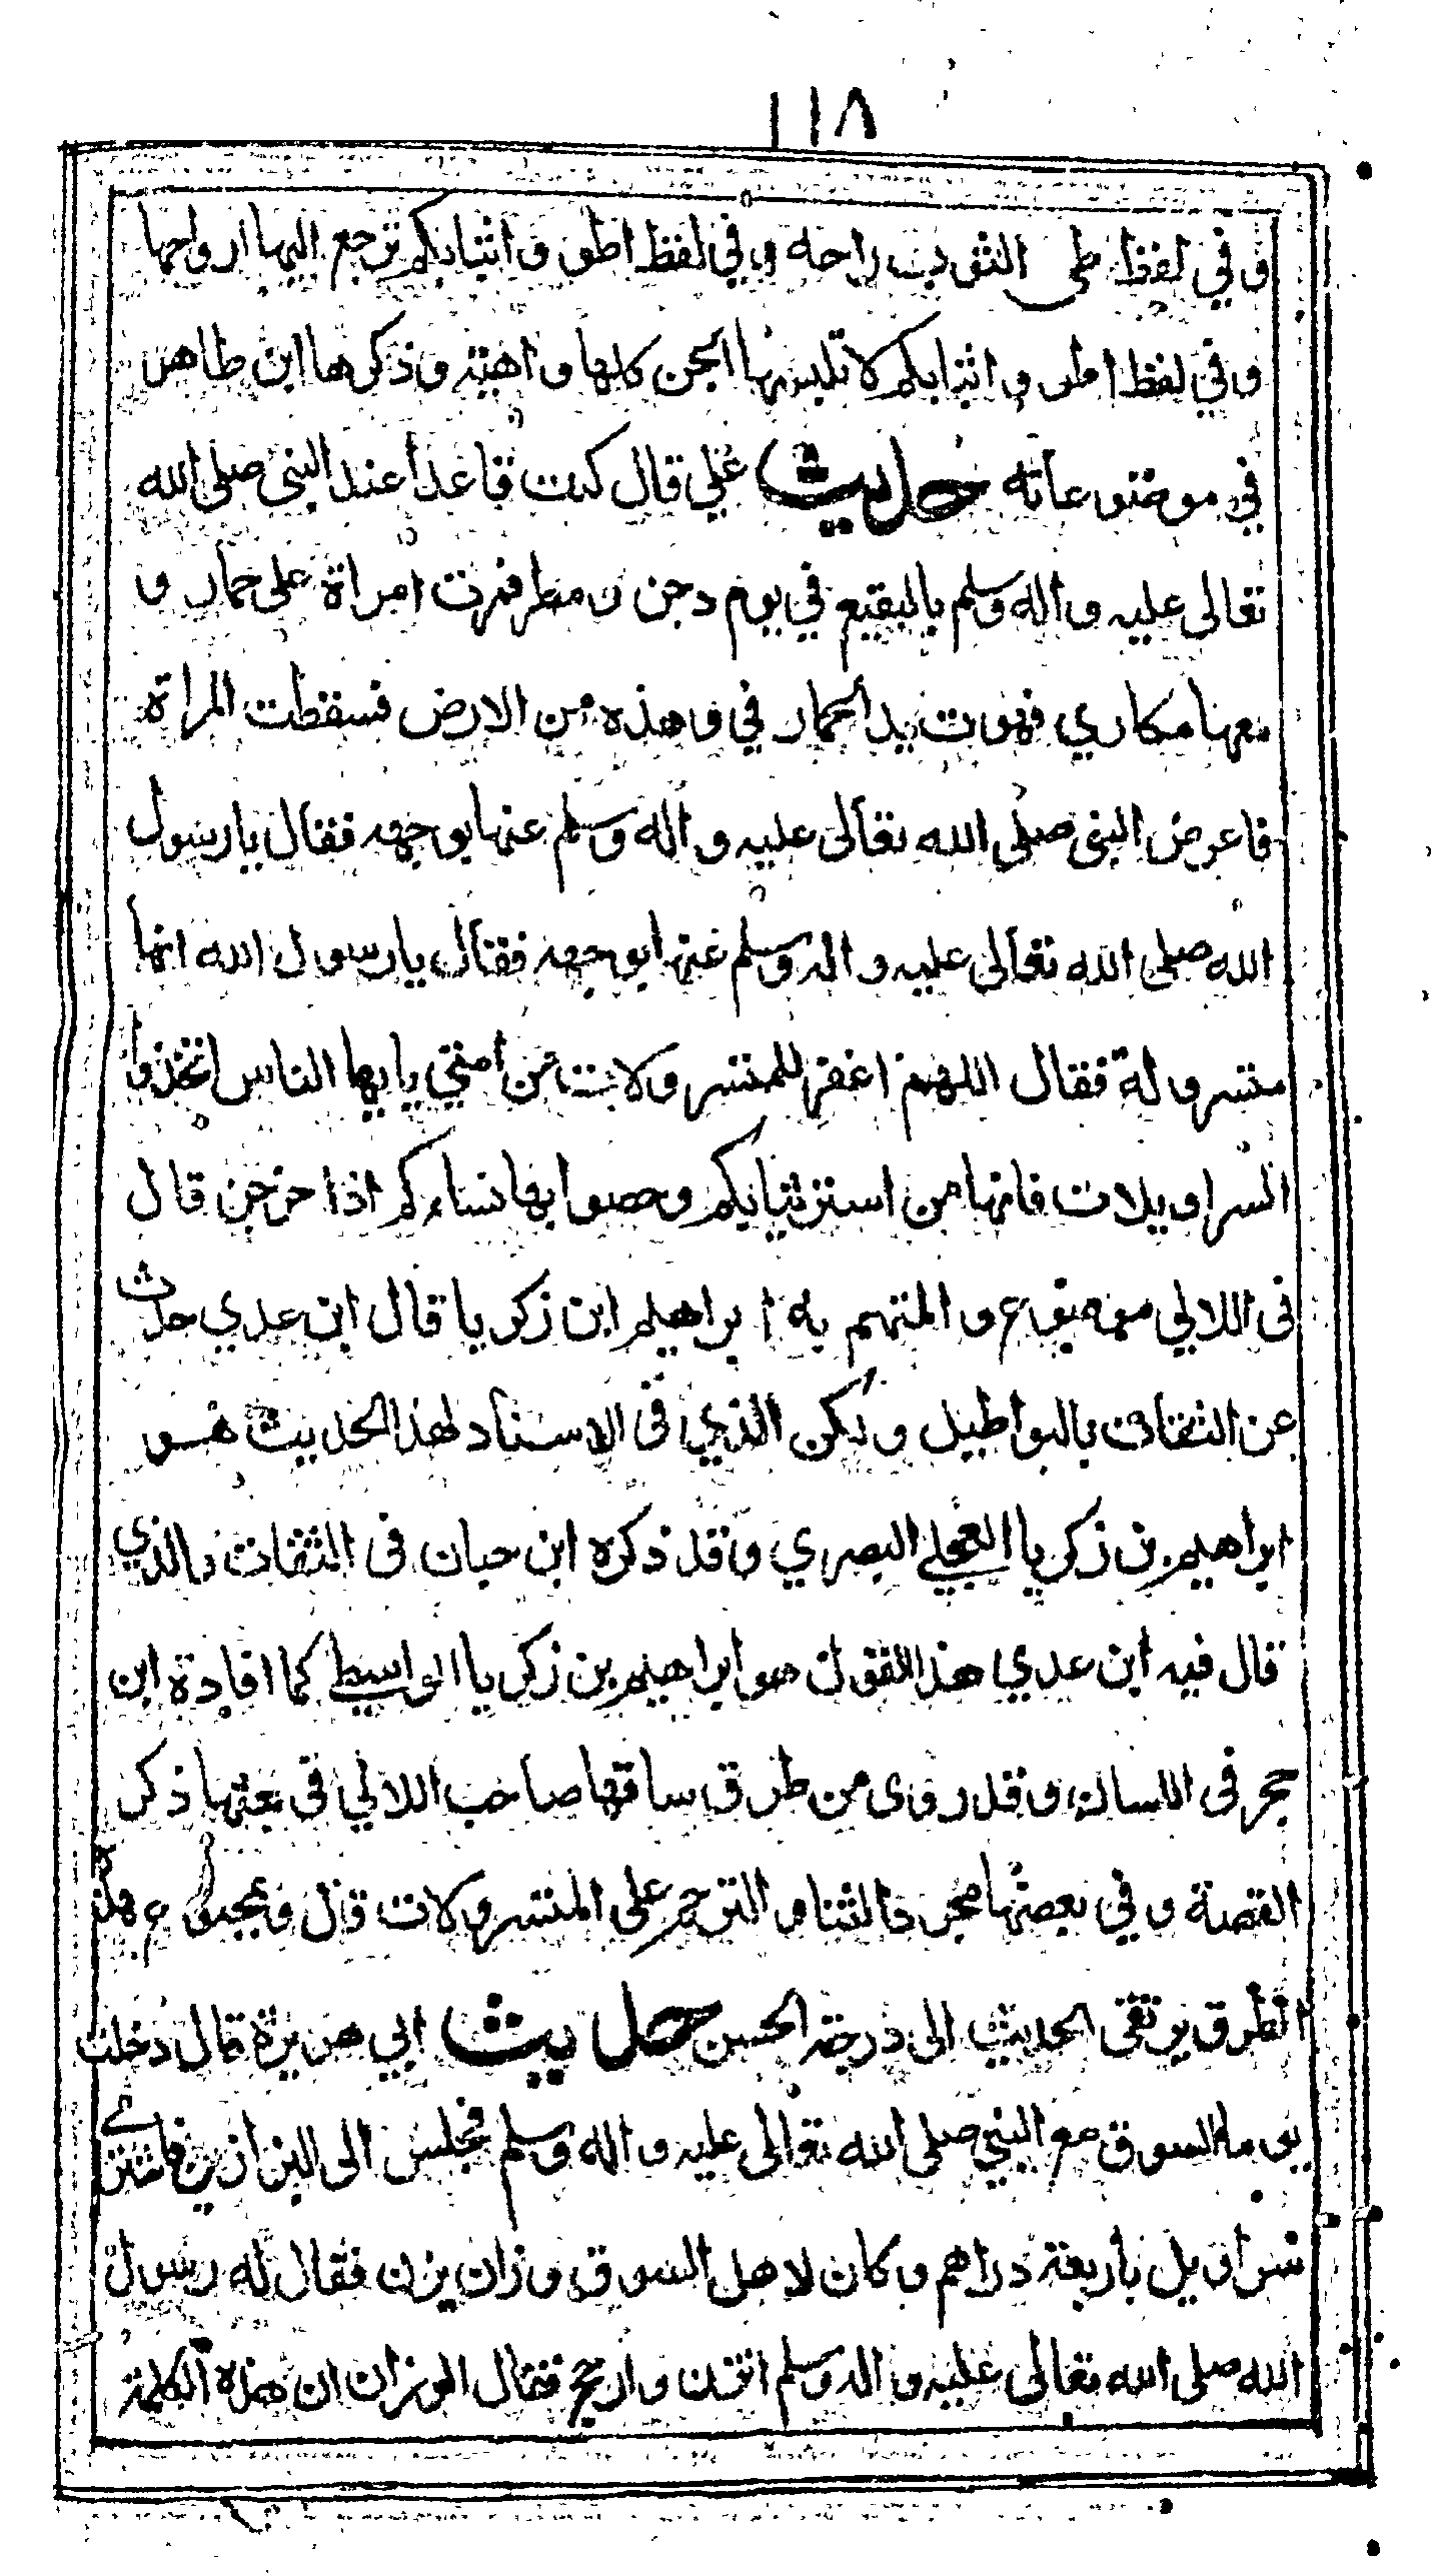 ١١٨
وفي لفظ طي الثوب راحه وفي لفظ اطوو اثيابكم ترجع اليها ارواحها
وفي لفظ اطووا اثيابكم لا تلبسها الجن كلها واهية وذكرها ابن طاهر
في موضوعاته حديث علي قال كنت قاعدا عند النبي صلى الله
تعالى عليه واله وسلم بالبقيع في يوم دجن ومطر فمرت امراة على حمار و
معها مكاري فهوت يد الحمار في وهذه من الارض فسقطت المراة
فاعرض النبي صلى الله تعالى عليه واله وسلم عنها بوجهه فقال يا رسول
الله صلى الله تعالى عليه واله وسلم عنها بوجهه فقال يا رسول الله انها
متسرولة فقال اللهم اغفر للمتسرولات من امتي يا يها الناس اتخذوا
السراويلات فانها من استر ثيابكم وحصنوا بها نساءكم اذا خرجن قال
فى اللالي موضوع والمتهم به ابراهيم ابن زكريا قال ابن عدي حدث
عن الثقات بالبواطيل ولكن الذي فى الاسناد لهذا الحديث هو
ابراهيم بن زكريا العجلي البصري وقد ذكره ابن حبان فى الثقات والذي
قال فيه ابن عدي هذا القول هو ابراهيم بن زكريا الواسطي كما افادة ابن
حجر فى اللسان وقد روى من طرق ساقها صاحب اللالي فى بعضها ذكر
القصة وفي بعضها مجرد الثناء والترحم على المتسرولات قال وبمجموع هذه
الطرق يرتقى الحديث الى درجة الحسن حديث ابي هريرة قال دخلت
يوما السوق مع النبي صلى الله تعالى عليه واله وسلم فجلس الى البزازين فاشترى
سراويل باربعة دراهم وكان لاهل السوق وزان يزن فقال له رسول
الله صلى الله تعالى عليه واله وسلم اتزن وارجح فقال الوزان ان هذه الكلمة